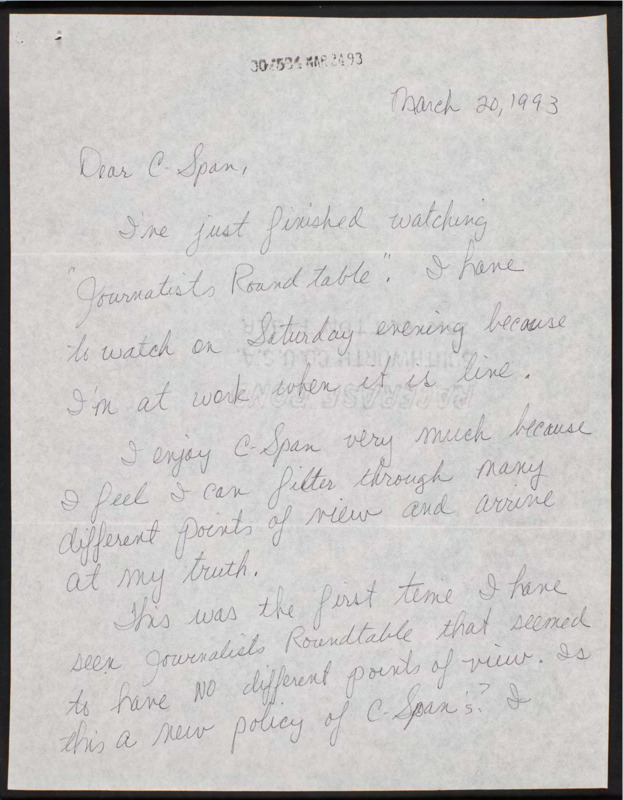 302534 MAR 24 93
March 20, 1993
Dear C-Span,
I've just finished watching
"Journalists Round table". I have
to watch on Saturday evening because
I'm at work when it is live.
I enjoy C-Span very much because
I feel I can filter through many
different points of view and arrive
at my truth.
This was the first time I have
seen Journalists Roundtable that seemed
to have NO different points of view. Is
this a new policy of C-Span's? I